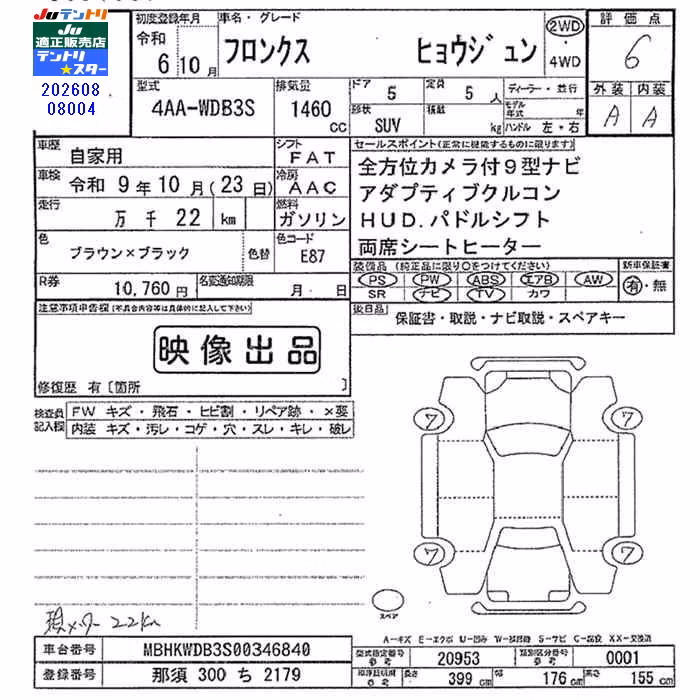 Juテントリ
Ju
適正販売店
テントリ
★スター
202608
08004
初度登録年月
令和
6 10月
車名・グレード
フロンクス ヒョウジュン
2WD
・
4WD
評価点
6
型式
4AA-WDB3S
排気量
1460
cc
ドア
5
定員
5人
形状
SUV
積載
kg
ディーラー・並行
モデル
年式 年
ハンドル 左・右
外装 内装
A A
車歴
自家用
シフト
FAT
車検
令和 9年10月(23日)
冷房
AAC
走行
万 千 22 km
燃料
ガソリン
色
ブラウン×ブラック
色替
色コード
E87
R券
10,760円
名変通知期限
月 日
セールスポイント(正常に機能するものに限ります)
全方位カメラ付9型ナビ
アダプティブクルコン
HUD.パドルシフト
両席シートヒーター
装備品(純正品に限り○をつけてください)
PS PW ABS エアB AW
SR ナビ TV カワ
新車保証書
有・無
後日品
保証書・取説・ナビ取説・スペアキー
注意事項申告欄(不具合内容等は具体的に記入して下さい)
映像出品
修復歴 有〔箇所 〕
検査員
記入欄
FW キズ・飛石・ヒビ割・リペア跡・×要
内装 キズ・汚レ・コゲ・穴・スレ・キレ・破レ
ワ ワ
ワ ワ
スペア
現メーター 22km
A-キズ E-エクボ U-凹み W-波修跡 S-サビ C-腐食 XX-交換済
車台番号
MBHKWDB3S00346840
登録番号
那須 300 ち 2179
型式指定番号
参考
20953
類別区分番号
参考
0001
参考
長さ
399cm
幅
176cm
高さ
155cm